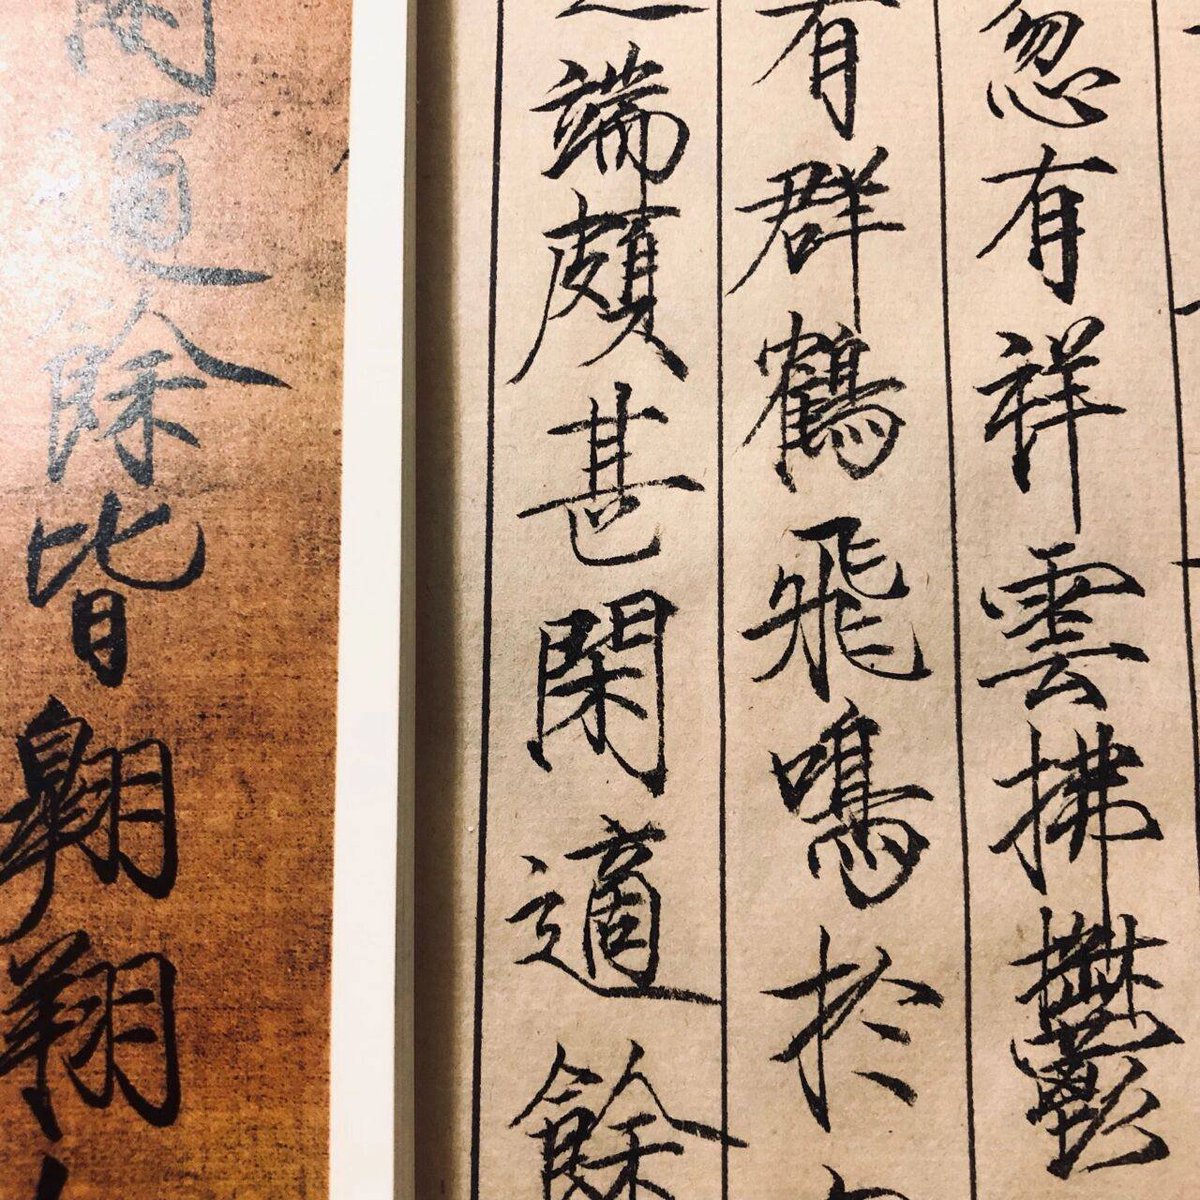 忽有祥雲拂鬱
有群鶴飛鳴於
端頗甚閑適餘
閑適餘皆翱翔